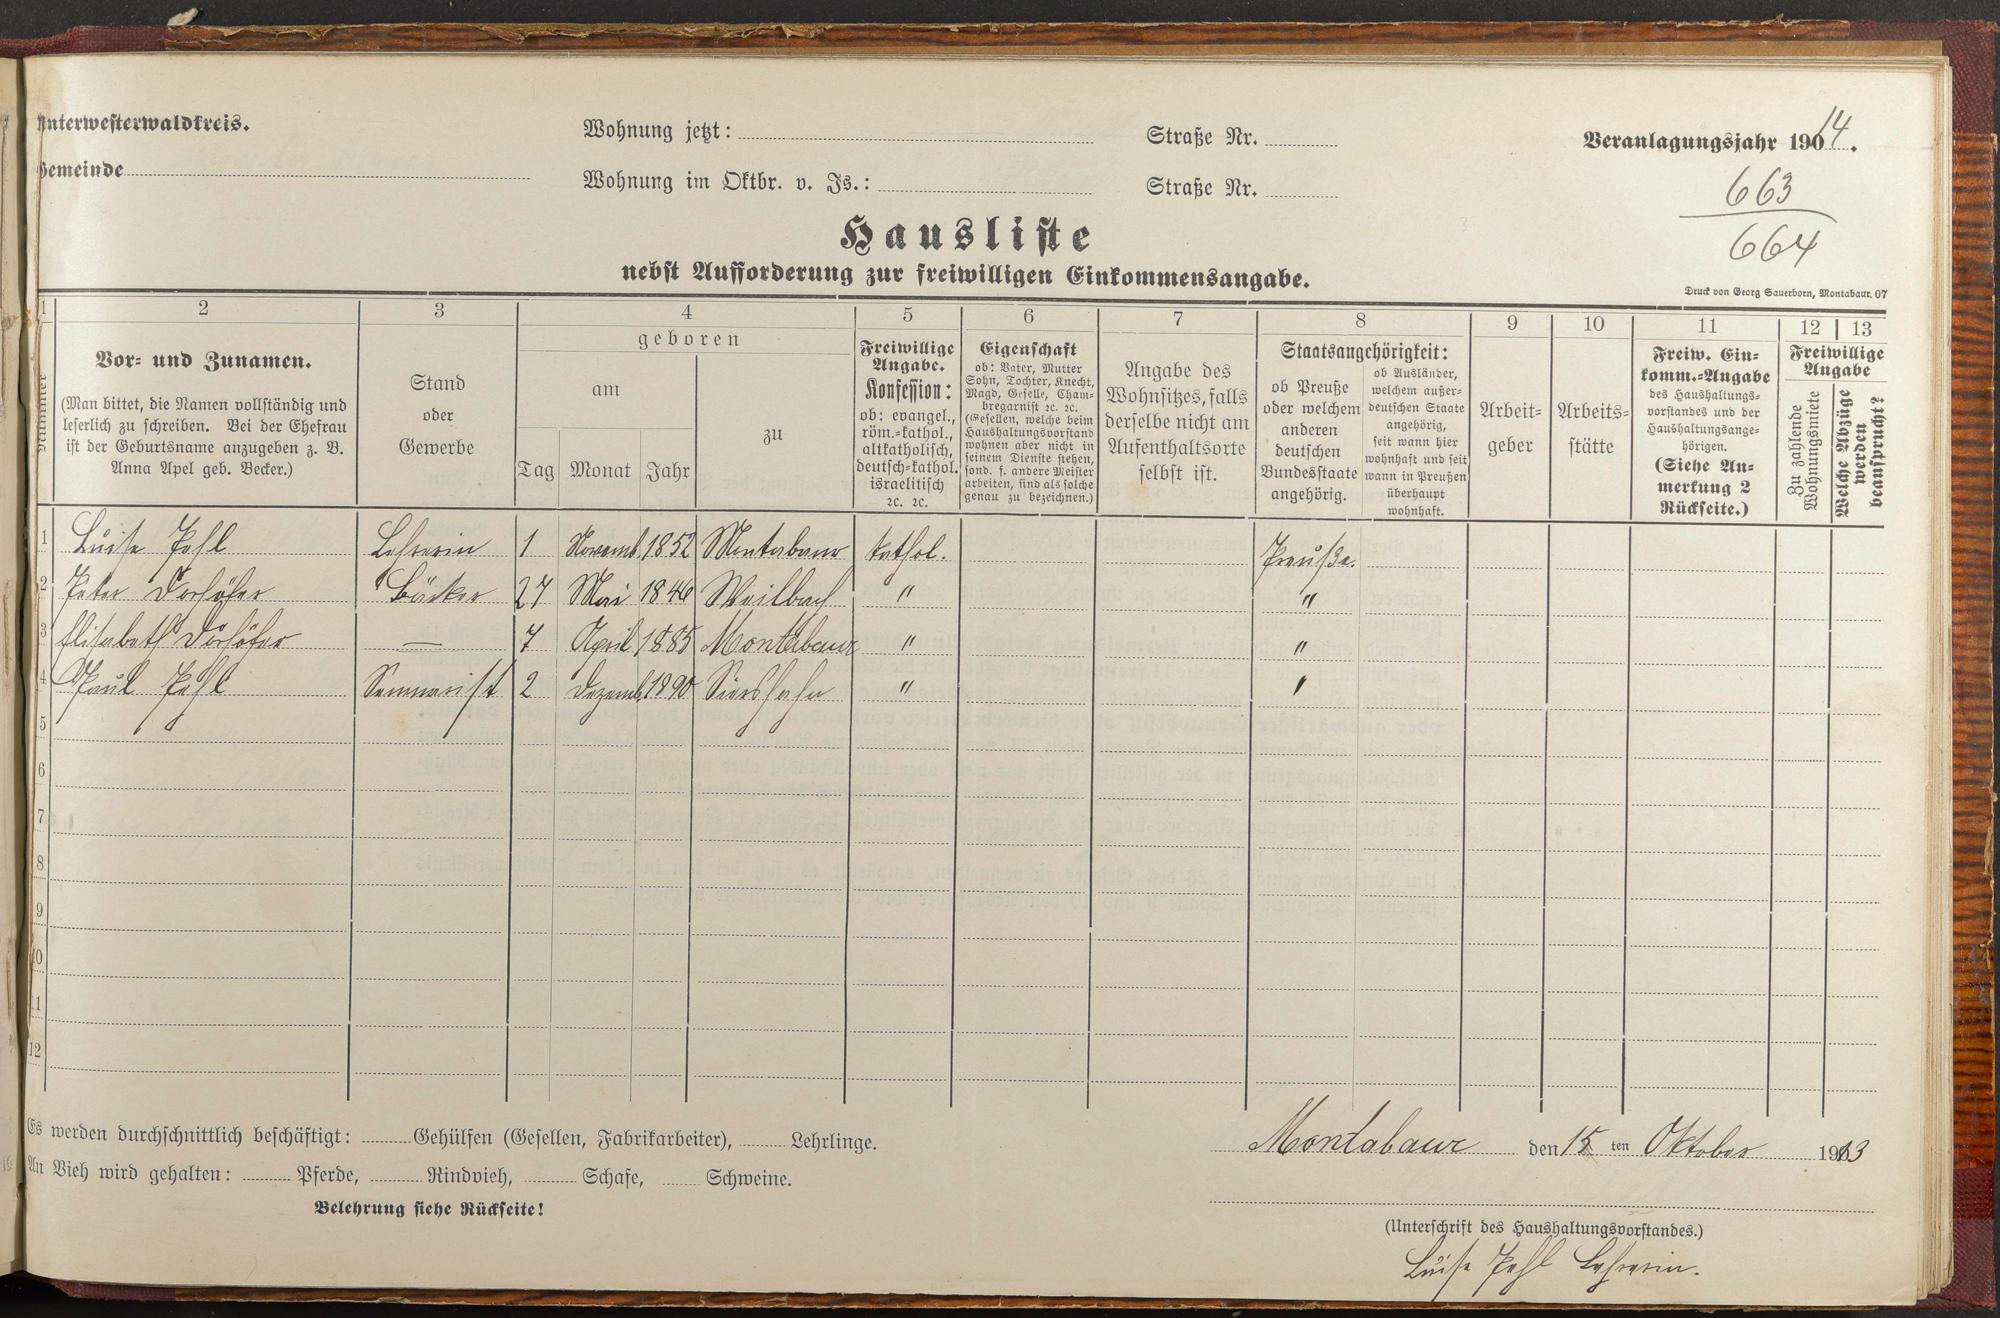 Unterwesterwaldkreis.
Wohnung jetzt:
Straße Nr.
Veranlagungsjahr 19014.
Gemeinde
Wohnung im Oktbr. v. Js.:
Straße Nr.
663
664
Hausliste
nebst Aufforderung zur freiwilligen Einkommensangabe.
Druck von Georg Sauerborn, Montabaur. 07
1 2 3 4 5 6 7 8 9 10 11 12 13
Nummer
Vor- und Zunamen.
(Man bittet, die Namen vollständig und
leserlich zu schreiben. Bei der Ehefrau
ist der Geburtsname anzugeben z. B.
Anna Apel geb. Becker.)
Stand
oder
Gewerbe
geboren
am
Tag Monat Jahr
zu
Freiwillige
Angabe.
Konfession:
ob: evangel.,
röm.-kathol.,
altkatholisch,
deutsch-kathol.
israelitisch
2c. 2c.
Eigenschaft
ob: Vater, Mutter
Sohn, Tochter, Knecht,
Magd, Geselle, Cham-
bregarnist 2c. 2c.
(Gesellen, welche beim
Haushaltungsvorstand
wohnen aber nicht in
seinem Dienste stehen,
sond. f. andere Meister
arbeiten, sind als solche
genau zu bezeichnen.)
Angabe des
Wohnsitzes, falls
derselbe nicht am
Aufenthaltsorte
selbst ist.
Staatsangehörigkeit:
ob Preuße
oder welchem
anderen
deutschen
Bundesstaate
angehörig.
ob Ausländer,
welchem außer-
deutschen Staate
angehörig,
seit wann hier
wohnhaft und seit
wann in Preußen
überhaupt
wohnhaft.
Arbeit-
geber
Arbeits-
stätte
Freiw. Ein-
komm.-Angabe
des Haushaltungs-
vorstandes und der
Haushaltungsange-
hörigen.
(Siehe An-
merkung 2
Rückseite.)
Freiwillige
Angabe
Zu zahlende
Wohnungsmiete
Welche Abzüge
werden
beansprucht?
1 Luise Pehl Lehrerin 1 Novemb. 1852 Montabaur kathol. Preuße.
2 Peter Dorhöfer Bäcker 27 Mai 1846 Weilbach " "
3 Elisabeth Dorhöfer — 7 April 1885 Montabaur " "
4 Paul Pehl Seminarist 2 Dezemb. 1890 Siershahn " "
5
6
7
8
9
10
11
12
Es werden durchschnittlich beschäftigt: Gehülfen (Gesellen, Fabrikarbeiter), Lehrlinge.
An Vieh wird gehalten: Pferde, Rindvieh, Schafe, Schweine.
Belehrung siehe Rückseite!
Montabaur den 15 ten Oktober 1913
(Unterschrift des Haushaltungsvorstandes.)
Luise Pehl Lehrerin.